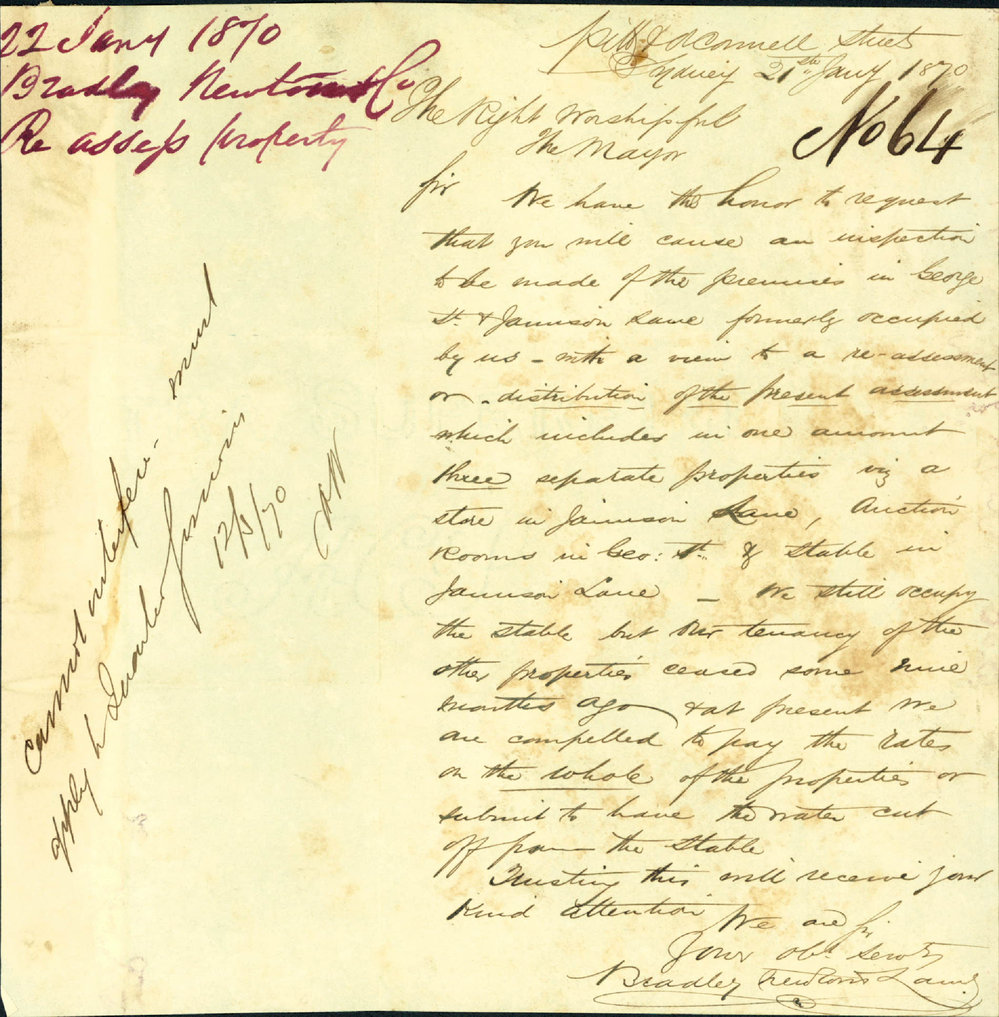 22 Jany 1870
Bradley Newton & Co
Re assess property
Pitt & O'Connell Street
Sydney 21st Jany 1870
No 64
The Right Worshipful
The Mayor
Sir We have the honor to request
that you will cause an inspection
to be made of the premises in George
St. & Jamison Lane formerly occupied
by us - with a view to a re-assessment
or - distribution of the present assessment
which includes in one amount
three separate properties viz a
store in Jamison Lane, Auction
Rooms in Geo: St. & Stable in
Jamison Lane - We still occupy
the stable but our tenancy of the
other properties ceased some nine
months ago & at present we
are compelled to pay the rates
on the whole of the properties or
submit to have the water cut
off from the Stable
Trusting this will receive your
kind attention
We are Sir
Your obt. Servts
Bradley Newton & Lamb
cannot interfere - must
apply to Quarter Sessions
12/5/70